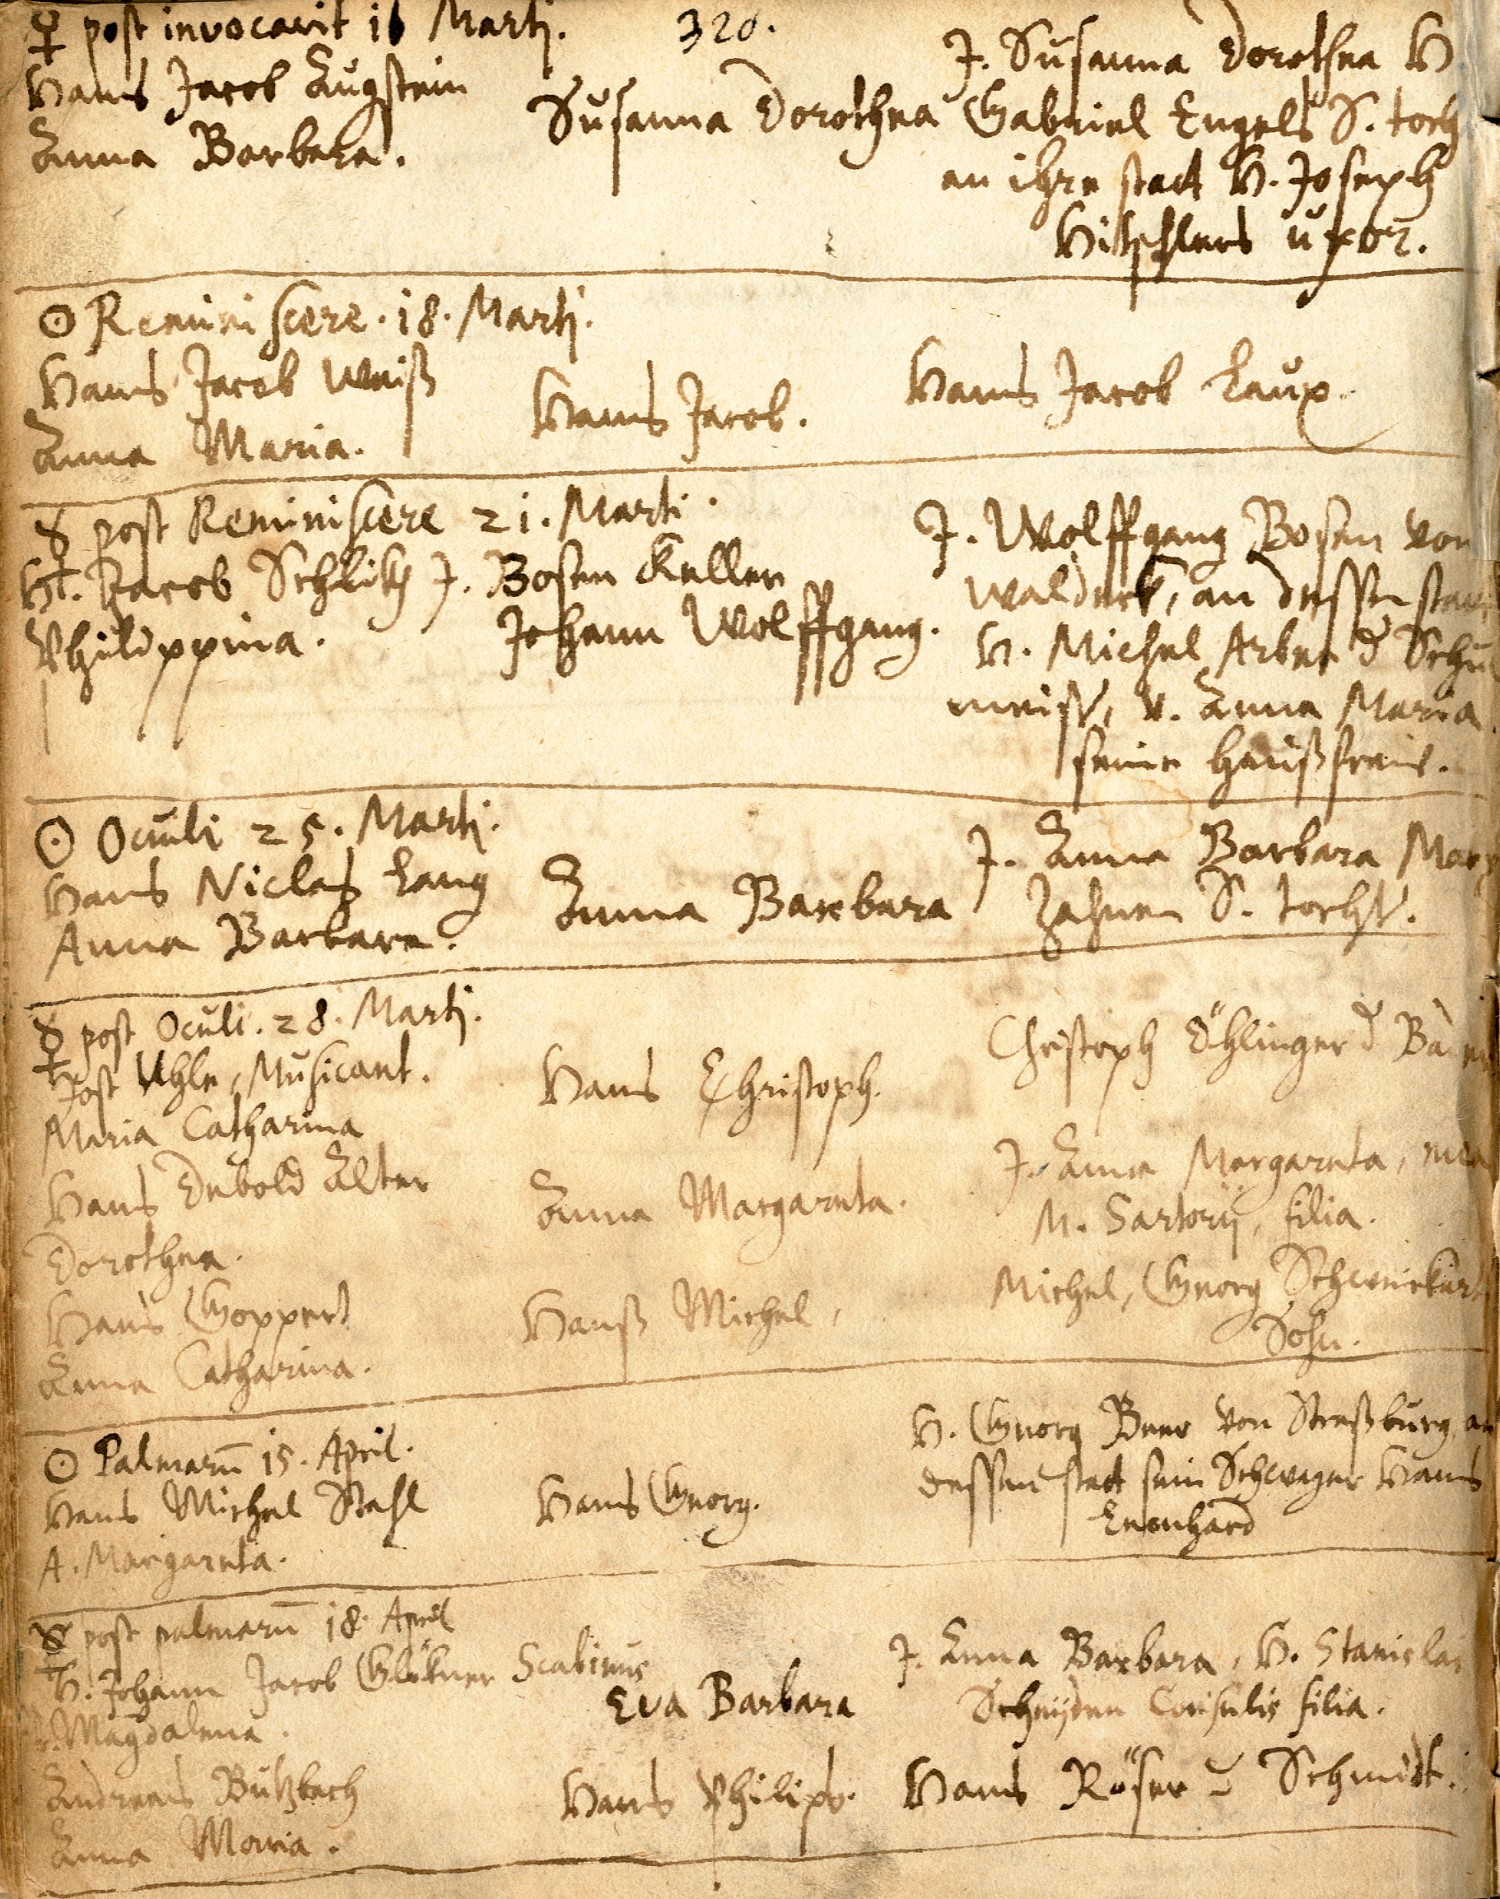 ♀ post invocavit 16 Martij. 320.
Hans Jacob Augstein
Anna Barbara.
Susanna Dorothea
J. Susanna Dorothea H.
Gabriel Engels S. toch
an ihre stadt H. Joseph
uxor.
☉ Reminiscere. 18. Martij.
Hans Jacob Weiß
Anna Maria.
Hans Jacob.
Hans Jacob Laux.
☿ post Reminiscere 21. Marti.
H. Jacob Schlitz J. Bosen Keller
Philippina.
Johann Wolffgang.
J. Wolffgang Bosen von
Waldeck, an dessen stat
H. Michel Arber d Schul
meist, v. Anna Maria
seine haußfraw.
☉ Oculi 25. Martij.
Hans Niclas Lang
Anna Barbara.
Anna Barbara
J. Anna Barbara Marx
Zahnen S. tocht.
☿ post Oculi. 28. Martij.
Jost Uhle, Musicant.
Maria Catharina
Hans Christoph.
Christoph Öhlinger d
Hans Debold Alter
Dorothea.
Anna Margareta.
J. Anna Margareta,
M. Sartorij, filia.
Hans Goppert
Anna Catharina.
Hanß Michel,
Michel, Georg Schweickart
Sohn.
☉ Palmarū 15. April.
Hans Michel Stahl
A. Margareta.
Hans Georg.
H. Georg Beer von Straßburg, an
dessen stadt sein Schwager Hans
☿ post palmarū 18. April
H. Johann Jacob Glökner Scabinus
Magdalena.
Eva Barbara
J. Anna Barbara, H. Stanislai
Schnyden Consulis filia.
Andreas Butzbach
Anna Maria.
Hans Philips.
Hans Röser d Schmidt.